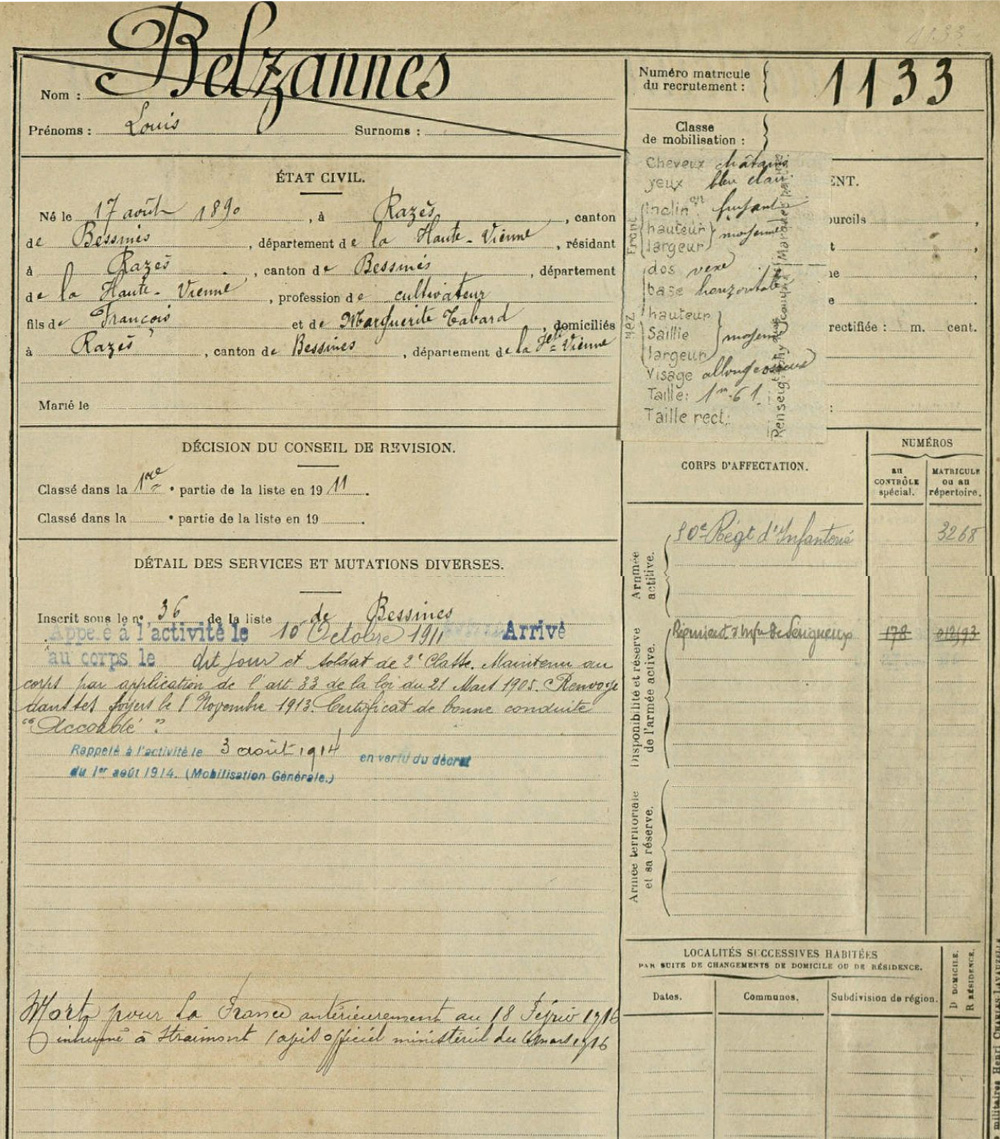 1133
Belzannes
Nom :
Prénoms : Louis Surnoms :
Numéro matricule
du recrutement : 1133
Classe
de mobilisation :
ÉTAT CIVIL.
Né le 17 août 1890, à Razès, canton
de Bessines, département de la Haute-Vienne, résidant
à Razès, canton de Bessines, département
de la Haute-Vienne, profession de cultivateur
fils de François et de Marguerite Tabard, domiciliés
à Razès, canton de Bessines, département de la Hte Vienne
Marié le
Cheveux châtains
yeux bleu clair
Front
inclin on fuyant
hauteur
largeur moyenne
Nez
dos vexe
base horizontale
hauteur
Saillie moyen
largeur
Visage allongé osseux
Taille: 1m 61
Taille rect:
ENT.
ourcils
rectifiée : m. cent.
DÉCISION DU CONSEIL DE REVISION.
Classé dans la 1re partie de la liste en 1911.
Classé dans la e partie de la liste en 19 .
DÉTAIL DES SERVICES ET MUTATIONS DIVERSES.
Inscrit sous le n° 36 de la liste de Bessines
Appelé à l'activité le 10 Octobre 1911 Arrivé
au corps le dit jour et soldat de 2e Classe. Maintenu au
corps par application de l'art 33 de la loi du 21 Mars 1905. Renvoyé
dans ses foyers le 1 Novembre 1913. Certificat de bonne conduite
"Accordé".
Rappelé à l'activité le 3 août 1914 en vertu du décret
du 1er août 1914. (Mobilisation Générale.)
Mort pour la France antérieurement au 18 Février 1916
inhumé à Straimont (avis officiel ministériel du mars 1916
CORPS D'AFFECTATION.
NUMÉROS
au
CONTRÔLE
spécial.
MATRICULE
ou au
répertoire.
Armée
active.
50e Régt d'Infanterie 3268
Disponibilité et réserve
de l'armée active.
Régiment d'Infie de Périgueux 178
Armée territoriale
et sa réserve.
LOCALITÉS SUCCESSIVES HABITÉES
PAR SUITE DE CHANGEMENTS DE DOMICILE OU DE RÉSIDENCE.
Dates. Communes. Subdivision de région.
D. DOMICILE.
R. RÉSIDENCE.
militaires Henri CHARLES-LAVAUZELLE